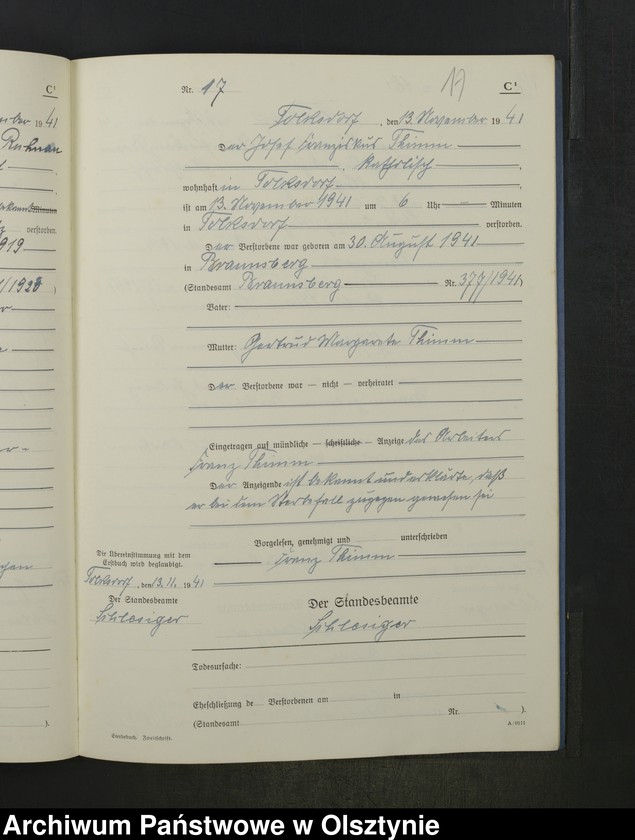 41
1919
verstorben.
Nr. 17
17
C¹
Tolksdorf, den 13. November 1941
Der Josef Franziskus Thimm
, katholisch
wohnhaft in Tolksdorf
ist am 13. November 1941 um 6 Uhr — Minuten
in Tolksdorf verstorben.
Der Verstorbene war geboren am 30. August 1941
in Braunsberg
(Standesamt Braunsberg Nr. 377/1941)
Vater:
Mutter: Gertrud Margarete Thimm
Der Verstorbene war — nicht — verheiratet
Eingetragen auf mündliche — schriftliche — Anzeige des Arbeiters
Franz Thimm
Der Anzeigende ist bekannt und erklärte, daß
er bei dem Sterbefall zugegen gewesen sei
Vorgelesen, genehmigt und unterschrieben
Franz Thimm
Die Übereinstimmung mit dem
Erstbuch wird beglaubigt.
Tolksdorf, den 13. 11. 1941
Der Standesbeamte
Schlesiger
Der Standesbeamte
Schlesiger
Todesursache:
Eheschließung de Verstorbenen am in
(Standesamt Nr. ).
Sterbebuch. Zweitschrift.
Archiwum Państwowe w Olsztynie